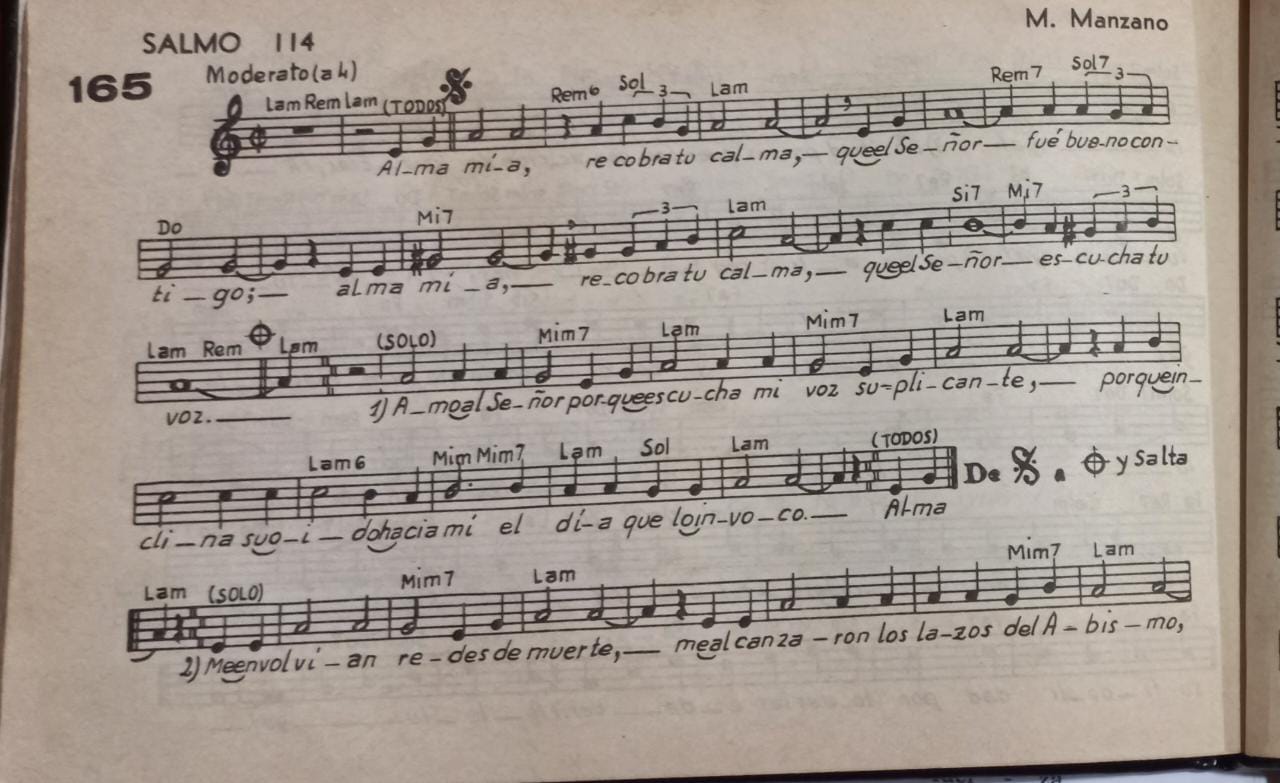 M. Manzano
SALMO 114
165
Moderato (a 4)
Lam Rem Lam (TODOS) Rem6 Sol 3 Lam Rem7 Sol7 3
Al-ma mí-a, recobra tu cal-ma,- que el Se-ñor- fué bue-no con-
Do Mi7 3 Lam Si7 Mi7 3
ti-go;- alma mí-a,- re-cobra tu cal-ma,- que el Se-ñor- es-cu-cha tu
Lam Rem Lam (SOLO) Mim7 Lam Mim7 Lam
voz.- 1) A-mo al Se-ñor por-que escu-cha mi voz su-pli-can-te,- porque in-
Lam6 Mim Mim7 Lam Sol Lam (TODOS)
De a y Salta
cli-na su o-i-do hacia mí el dí-a que lo in-vo-co.- Al-ma
Lam (SOLO) Mim7 Lam Mim7 Lam
2) Me envolví-an re-des de muerte,- me alcanza-ron los la-zos del A-bis-mo,